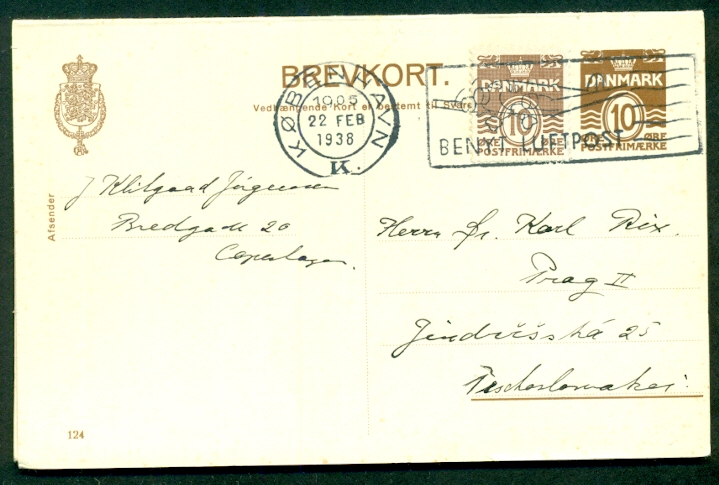 BREVKORT.
Vedhængende Kort er bestemt til Svaret
KØBENHAVN
22 FEB
1938
K.
BENYT LUFTPOST
DANMARK
10
ØRE
POSTFRIMÆRKE
DANMARK
10
ØRE
POSTFRIMÆRKE
Afsender
J Klitgaard Jörgensen
Bredgade 20
Copenhagen.
Herrn Dr. Karl Rix.
Prag II
Jindřišská 25
Tschechoslowakei.
124